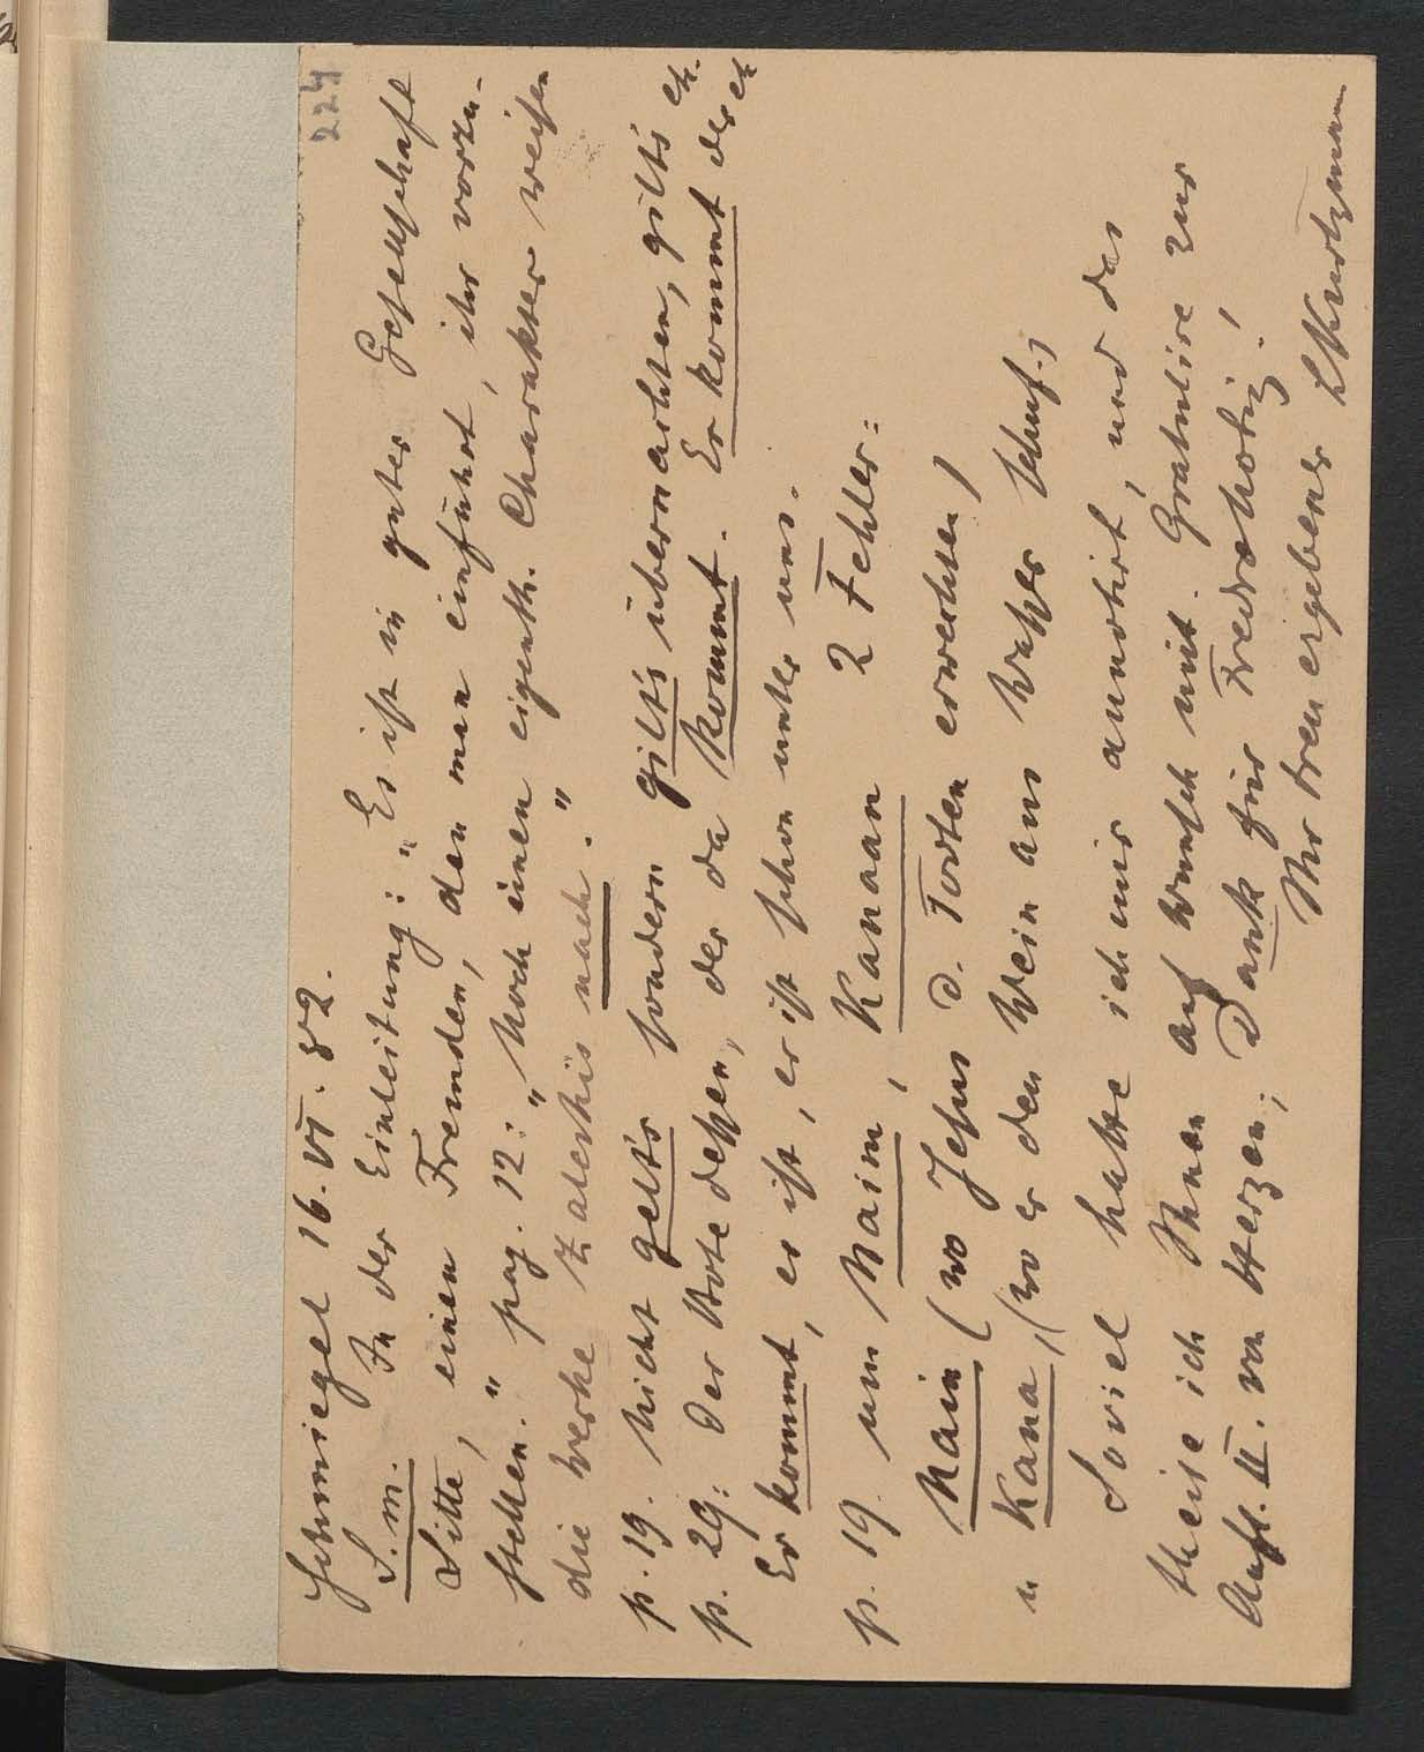 224
Schmiegel 16. VI. 82.
S. m. In der Einleitung: „Es ist in guter Gesellschaft
Sitte, einen Fremden, den man einführt, ihr vorzu-
stellen." pag. 12: „Noch einen eigenth. Charakter weisen
die Werke Zaleskis nach."
p. 19. Nicht gelt's sondern gilt's übernachten, gilt's etc.
p. 29: Der Bote dessen, der da kommt. Er kommt der etc
Er kommt, er ist, er ist schon unter uns.
p. 19. um Naim, Kanaan 2 Fehler:
Nain (wo Jesus d. Todten erweckten)
u Kana, (wo er den Wein aus Wasser schuf.)
Soviel hatte ich mir annotirt, und das
theile ich Ihnen auf Wunsch mit. Gratulire zur
Aufl. II. von Herzen; Dank für Fredrohotig!
Ihr treu ergebener LKurtzmann